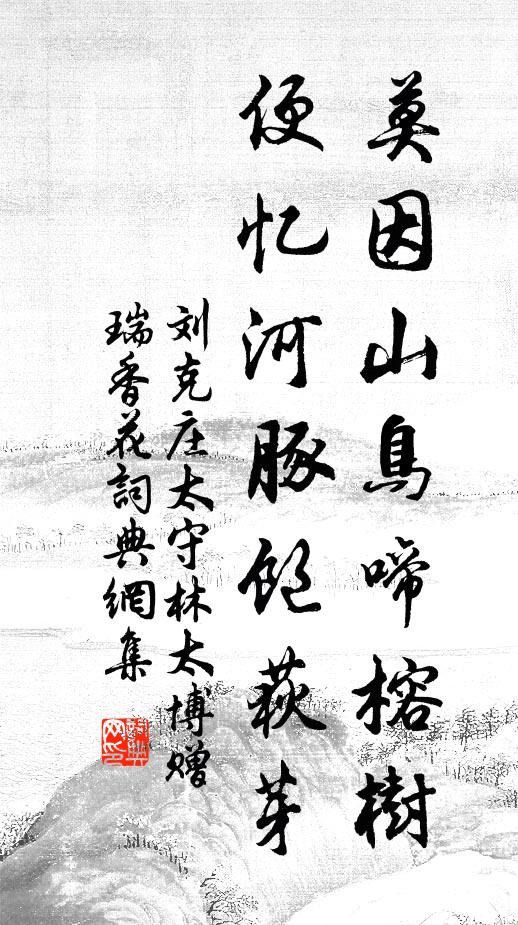 莫因山鳥啼榕樹
便忆河豚飽荻芽
刘克庄太守林太博赠
瑞香花詞典網集